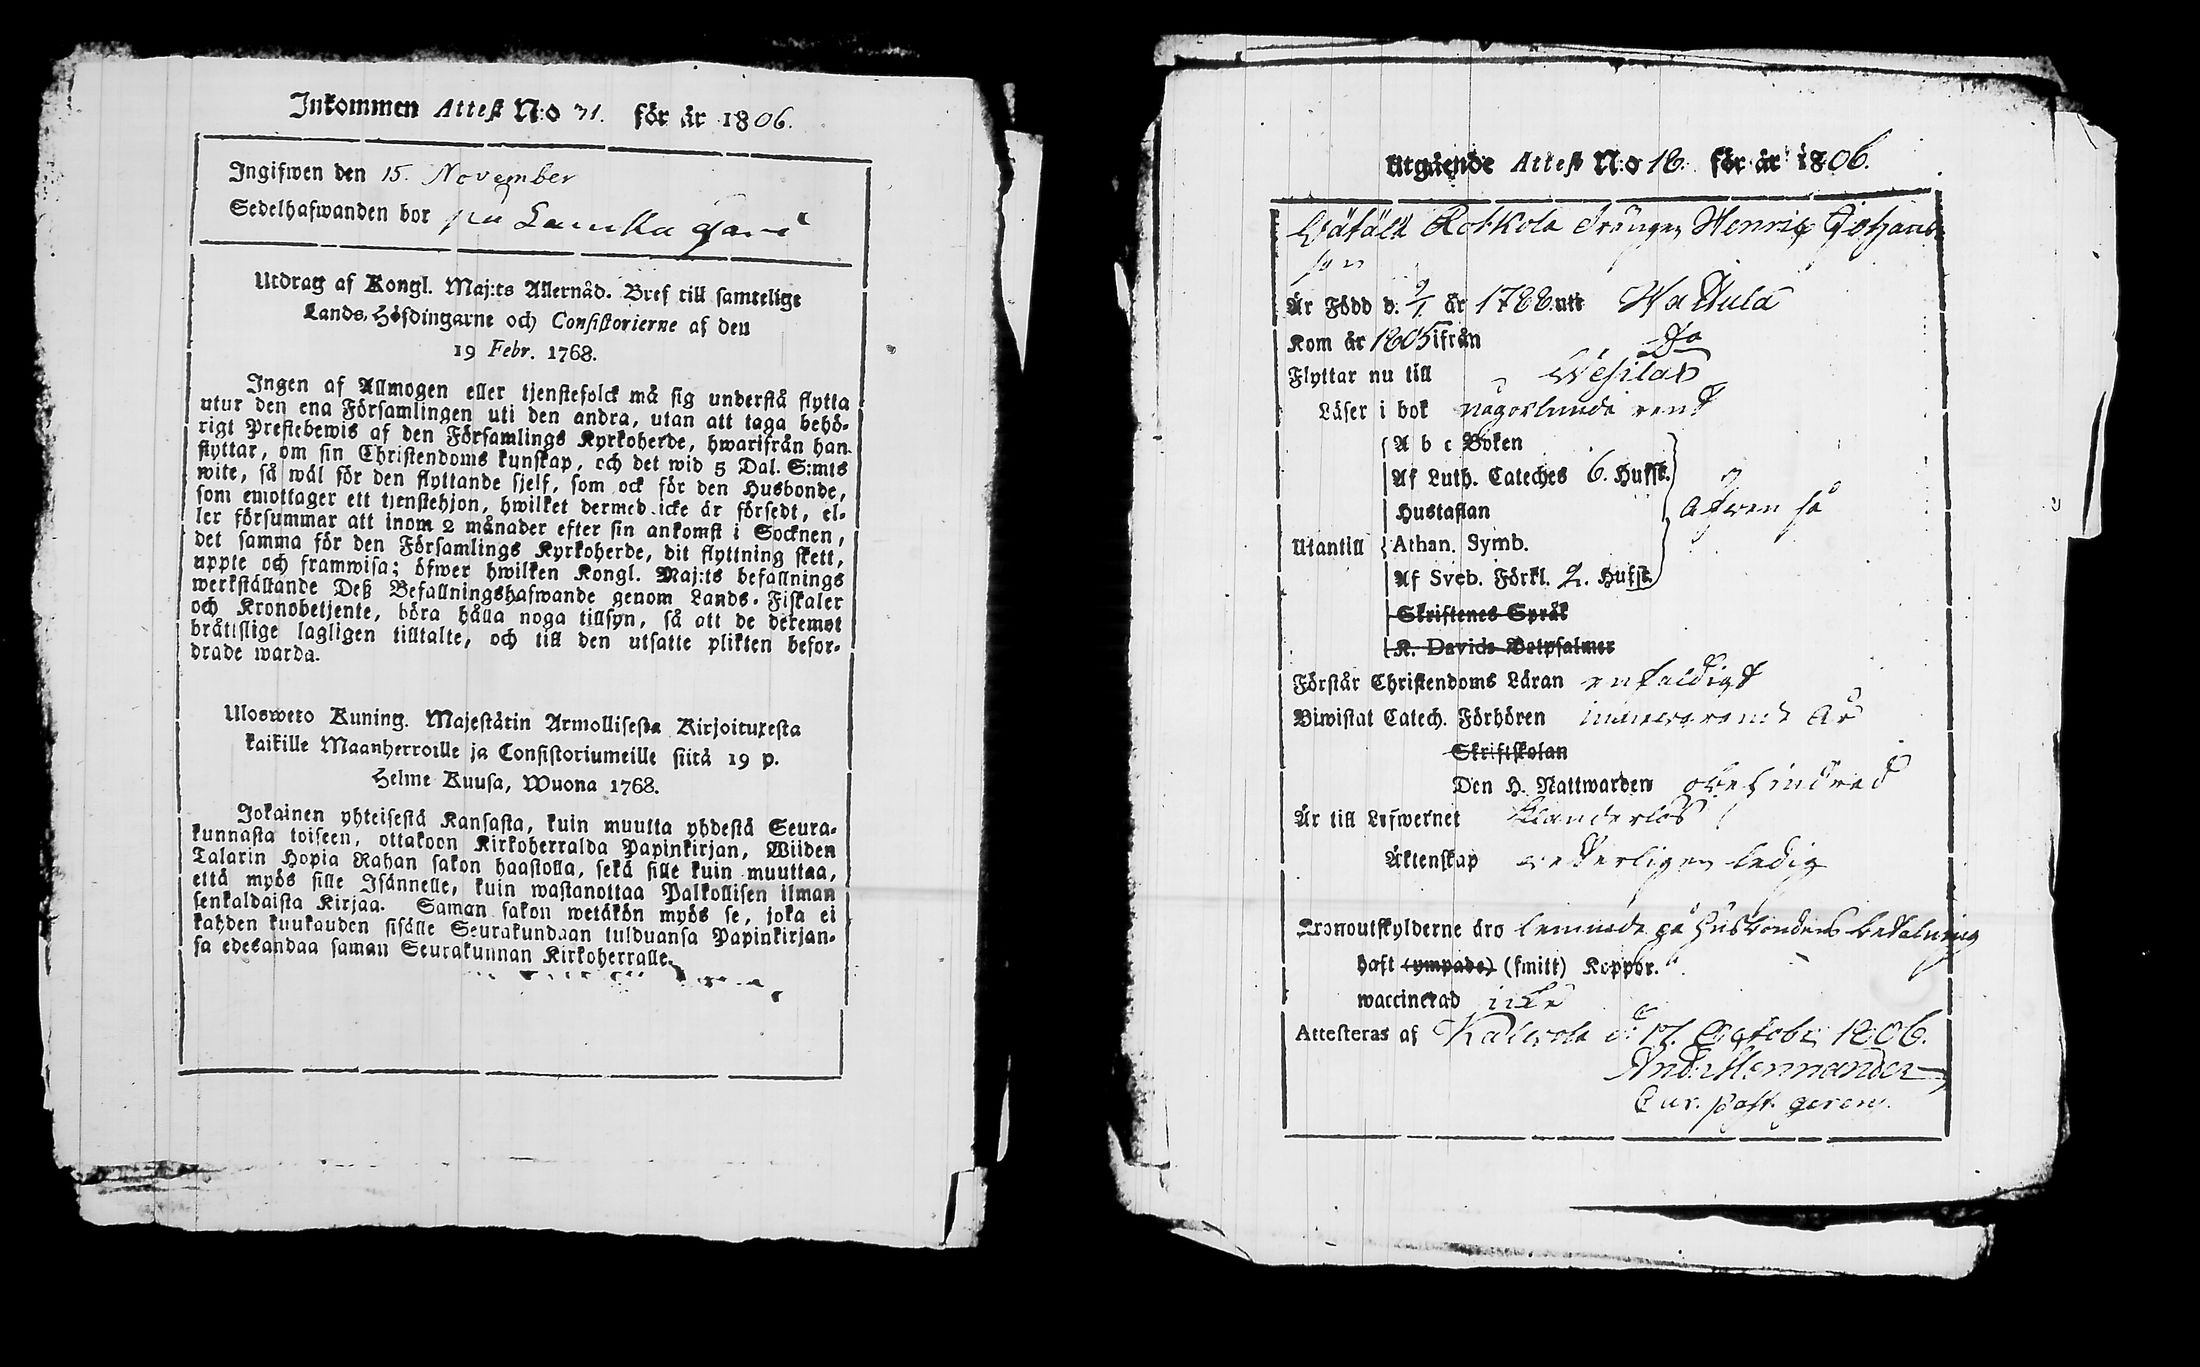 Inkommen Attest N:o 71. för år 1806.
Ingifwen den 15. November
Sedelhafwanden bor på Laukka gård
Utdrag af Kongl. Maj:ts Allernåd. Bref till samtelige
Lands-Höfdingarne och Consistorierne af den
19 Febr. 1768.
Ingen af Allmogen eller tjenstefolck må sig understå flytta
utur den ena Församlingen uti den andra, utan att taga behö-
rigt Prestebewis af den Församlings Kyrkoherde, hwarifrån han
flyttar, om sin Christendoms kunskap, och det wid 5 Dal. S:mts
wite, så wäl för den flyttande sjelf, som ock för den Husbonde,
som emottager ett tjenstehjon, hwilket dermed icke är försedt, el-
ler försummar att inom 2 månader efter sin ankomst i Socknen,
det samma för den Församlings Kyrkoherde, dit flyttning skett,
uppte och framwisa; öfwer hwilken Kongl. Maj:ts befallnings
werkställande Deß Befallningshafwande genom Lands-Fiskaler
och Kronobetjente, böra hålla noga tillsyn, så att de deremot
bråttslige lagligen tilltalte, och till den utsatte plikten befor-
drade warda.
Ulosweto Kuning. Majestätin Armollisesta Kirjoituxesta
kaikille Maanherroille ja Consistoriumeille siitä 19 p.
Helme Kuusa, Wuona 1768.
Jokainen yhteisestä Kansasta, kuin muutta yhdestä Seura-
kunnasta toiseen, ottakoon Kirkoherralda Papinkirjan, Wiiden
Talarin Hopia Rahan sakon haastolla, sekä sille kuin muuttaa,
että myös sille Isännelle, kuin wastanottaa Palkollisen ilman
senkaldaista Kirjaa. Saman sakon wetäkön myös se, joka ei
kahden kuukauden sisälle Seurakundaan tulduansa Papinkirjan-
sa edesandaa saman Seurakunnan Kirkoherralle.
Utgående Attest N:o 18. för år 1806.
Rotkola Drängen Henric Johans
son
Är Född d. 9/1 år 1788. uti Wattula
Kom år 1805 ifrån Do
Flyttar nu till Wesilax
Läser i bok någorlunda rent
A b c Boken
Af Luth. Cateches 6. Hufst.
Hustaflan
äfwen så
Utantill Athan. Symb.
Af Sveb. Förkl. 2. Hufst.
Skriftenes Språk
K. Davids Botpsalmer
Förstår Christendoms Läran enfaldigt
Biwistat Catech. Förhören innewarande År
Skriftskolan
Den H. Nattwarden obehindrad
Är till Lefwernet klanderlös
Äktenskap wederligen ledig
Kronoutskylderne äro lemnade på Husbondens betalning
haft (ympade) (smitt) Koppor.
waccinerad icke
Attesteras af Kalwola d: 17. Octobr 1806.
And: Mennander
Cur. past. gerens.